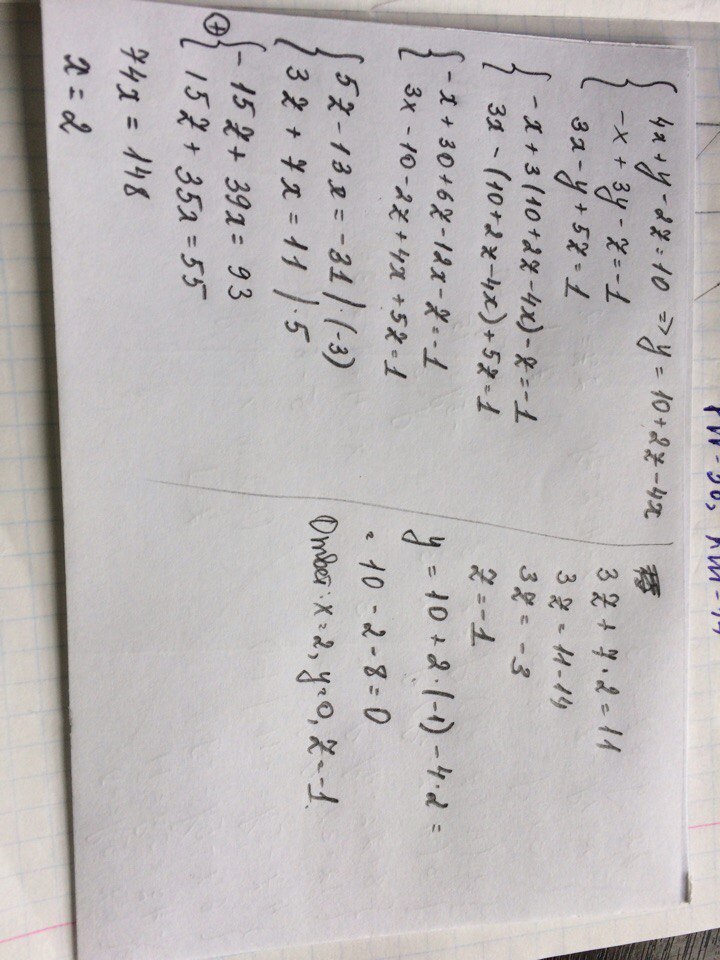 4x + y - 2z = 10 => y = 10 + 2z - 4x
-x + 3y - z = -1
3x - y + 5z = 1
-x + 3(10 + 2z - 4x) - z = -1
3x - (10 + 2z - 4x) + 5z = 1
-x + 30 + 6z - 12x - z = -1
3x - 10 - 2z + 4x + 5z = 1
5z - 13x = -31 | ·(-3)
3z + 7x = 11 | ·5
+
-15z + 39x = 93
15z + 35x = 55
74x = 148
x = 2
3z + 7·2 = 11
3z = 11 - 14
3z = -3
z = -1
y = 10 + 2·(-1) - 4·2 =
= 10 - 2 - 8 = 0
Ответ: x = 2, y = 0, z = -1.